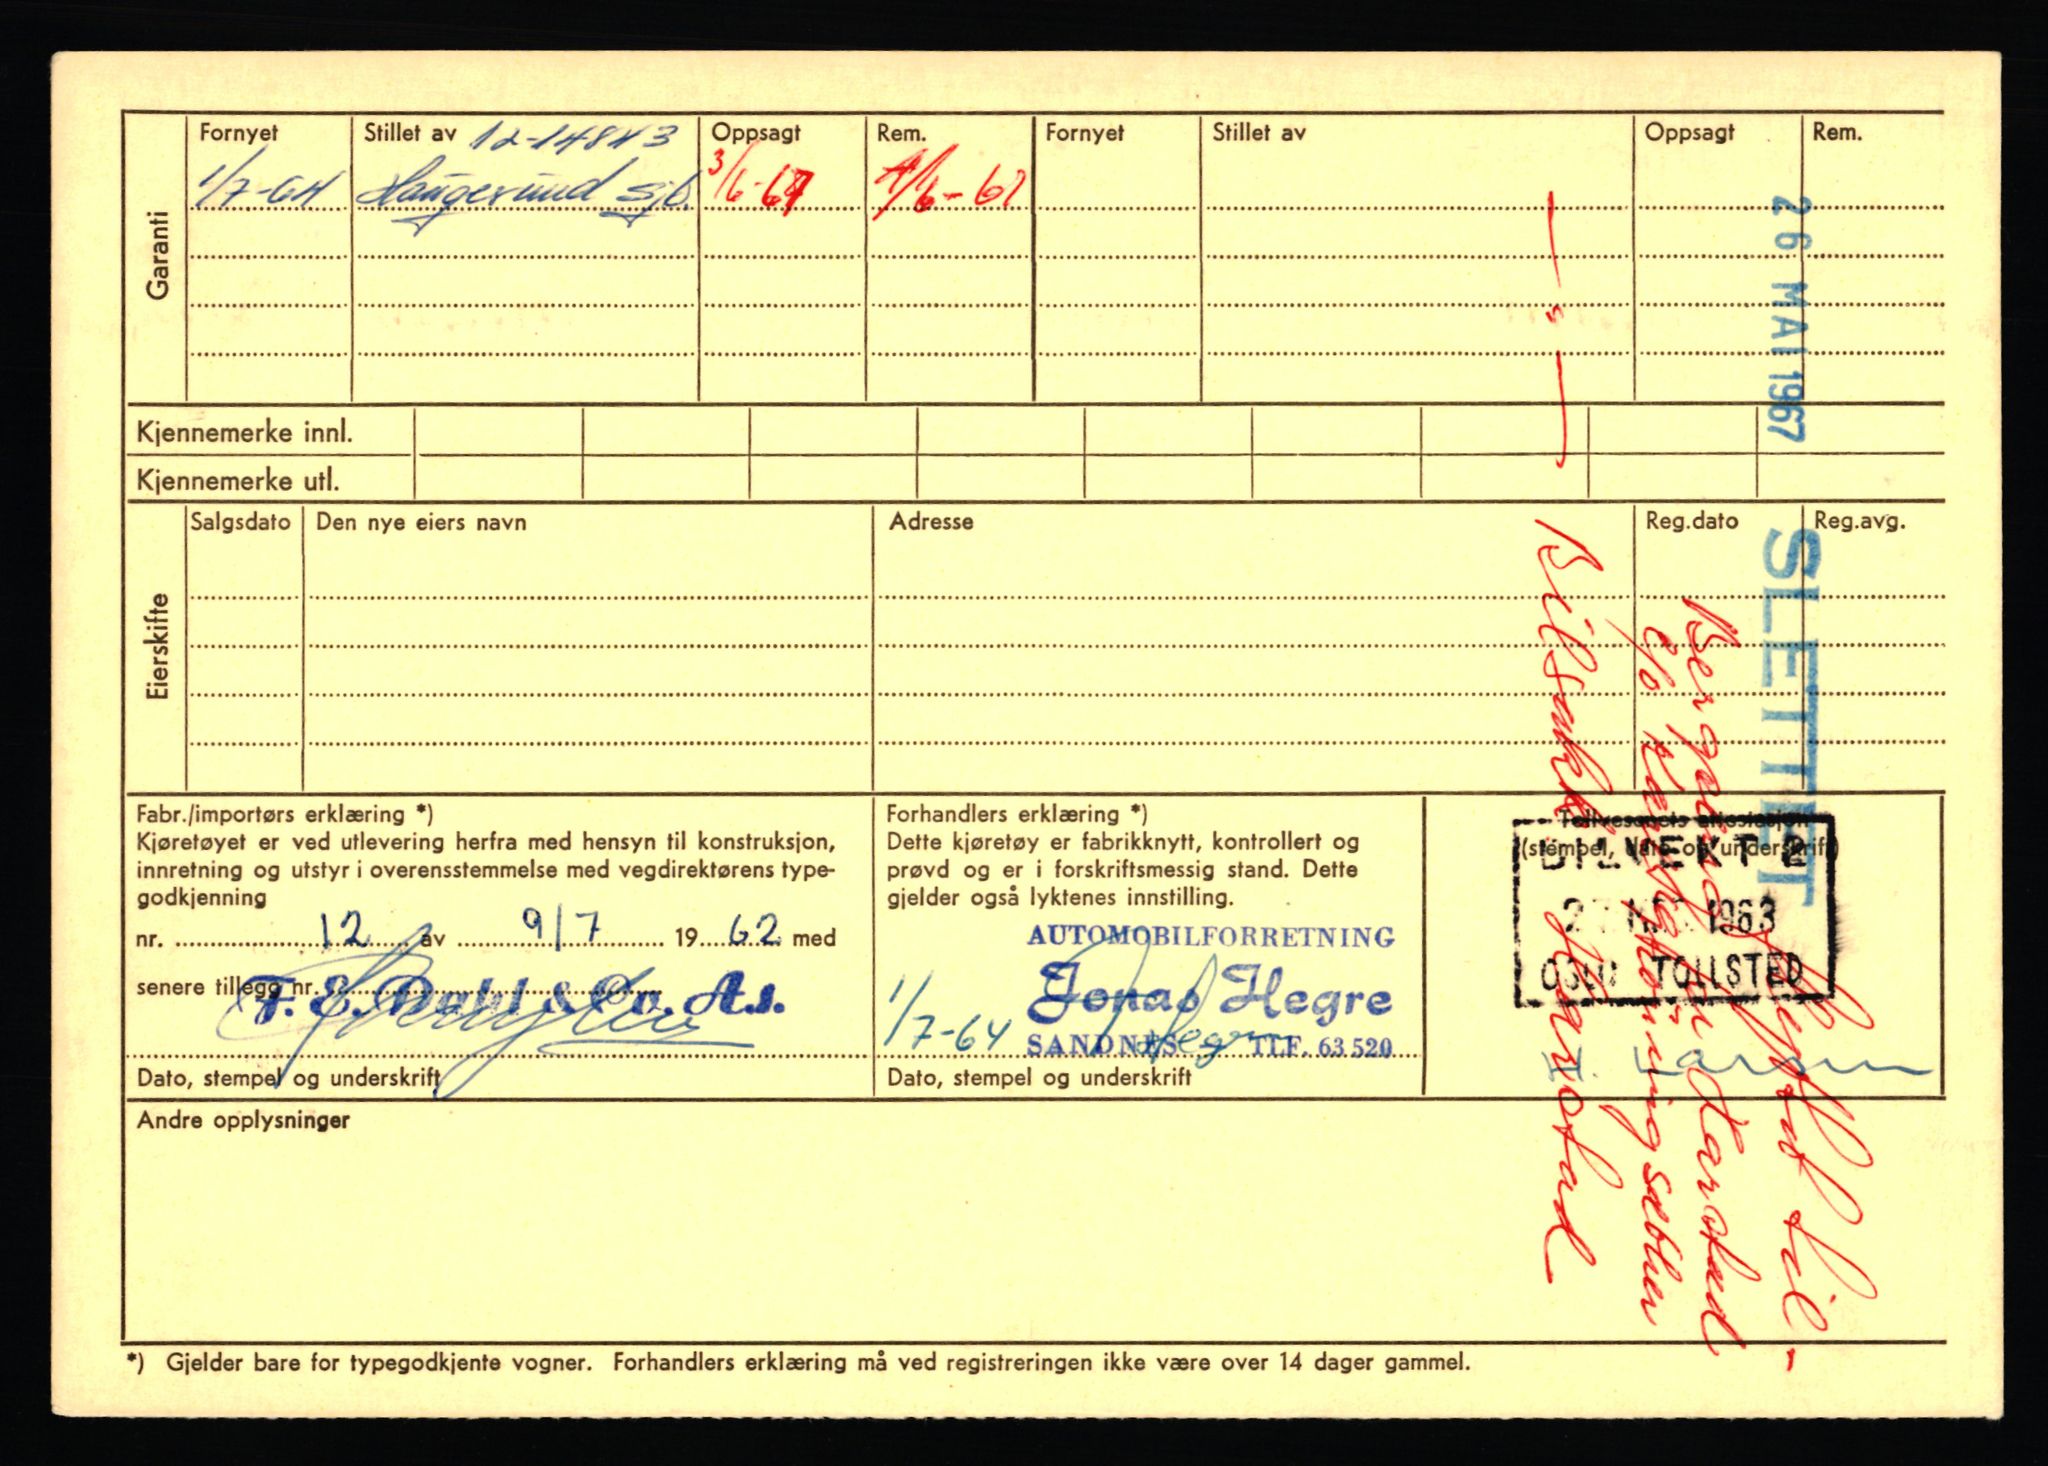 Garanti
Fornyet
Stillet av
Oppsagt
Rem.
Fornyet
Stillet av
Oppsagt
Rem.
1/7-64
Haugerund
3/6-67
1/6-67
26 MAI 1967
Kjennemerke innl.
Kjennemerke utl.
Eierskifte
Salgsdato
Den nye eiers navn
Adresse
Reg.dato
Reg.avg.
SLETTET
til-
Karstad
Bilsakk. Karstad
Fabr./importørs erklæring *)
Kjøretøyet er ved utlevering herfra med hensyn til konstruksjon,
innretning og utstyr i overensstemmelse med vegdirektørens type-
godkjenning
nr. 12 av 9/7 1962 med
senere tillegg nr.
F. E. Dahl & Co. A.s.
Dato, stempel og underskrift
Forhandlers erklæring *)
Dette kjøretøy er fabrikknytt, kontrollert og
prøvd og er i forskriftsmessig stand. Dette
gjelder også lyktenes innstilling.
AUTOMOBILFORRETNING
Jonas Hegre
1/7-64
SANDNES TLF. 63 520
Dato, stempel og underskrift
Tollvesenets attestasjon
(stempel, dato og underskrift)
BILVEKT 2
1963
OSLO TOLLSTED
Larsen
Andre opplysninger
*) Gjelder bare for typegodkjente vogner. Forhandlers erklæring må ved registreringen ikke være over 14 dager gammel.